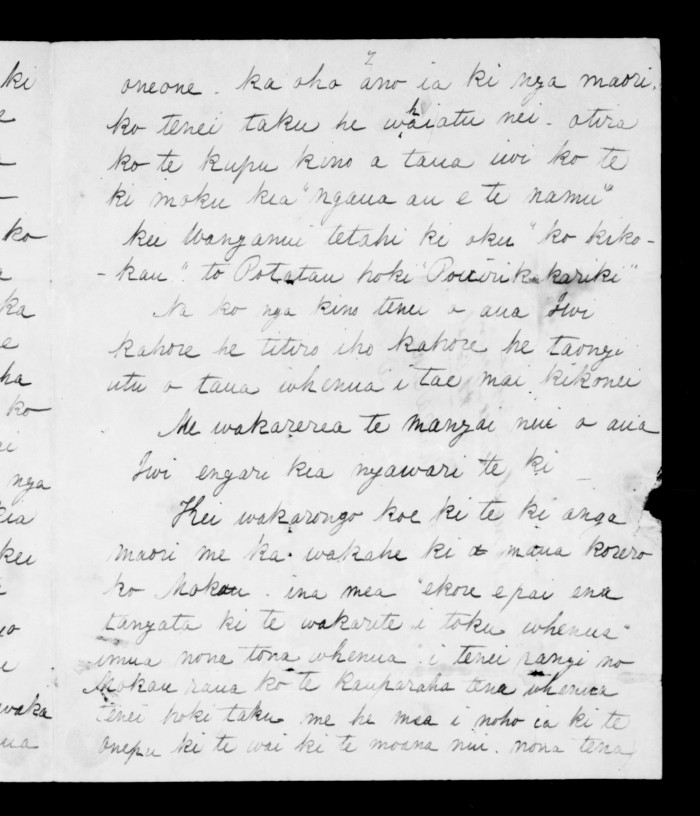 7
oneone. ka oho ano ia ki nga maori.
ko tenei taku he whaiatu nei - otira
ko te kupu kino a taua iwi ko te
ki moku kia "ngaua au e te namu"
kei Wanganui tetahi ki oku "ko kiko-
-kau". to Potatau hoki
Na ko nga kino tenei o aua Iwi
kahore he titiro iho kahore he taonga
utu o taua whenua i tae mai kikonei
Me wakarerea te mangai nui o aua
Iwi engari kia ngawari te ki
Kei wakarongo koe ki te ki anga
maori me ka wakahe ki a maua korero
ko Mokau. ina mea "ekore e pai ena
tangata ki te wakarite i toku whenua"
imua nona tona whenua. i tenei rangi no
Mokau raua ko te Rauparaha tena whenua
tenei hoki taku me he mea i noho ia ki te
onepu ki te wai ki te moana nui. nona tena
ki
ko
ka
ha
ko
nga
kia
kei
waka